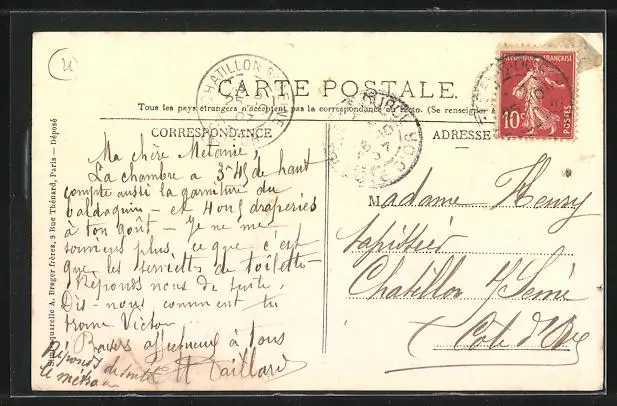 CARTE POSTALE.
Tous les pays étrangers n'acceptent pas la correspondance au recto. (Se renseigner
CORRESPONDANCE
ADRESSE
RÉPUBLIQUE FRANÇAISE
10c
POSTES
CHATILLON S SEINE
Ma chère Metanie,
La chambre a 3m45 de haut
compte aussi la garniture du
baldaquin – et vous draperies
à ton goût – Je ne me
souviens plus ce que c'est
que les serviettes de toilette
Réponds nous de suite.
Dis-nous comment tu
trouve Victor
Baisers affectueux à tous
Réponds de suite
le métrage
Madame Henry
tapissier
Chatillon s/ Seine
Côte d'Or
Simi-Aquarelle A. Breger frères, 9 Rue Thénard, Paris – Déposé